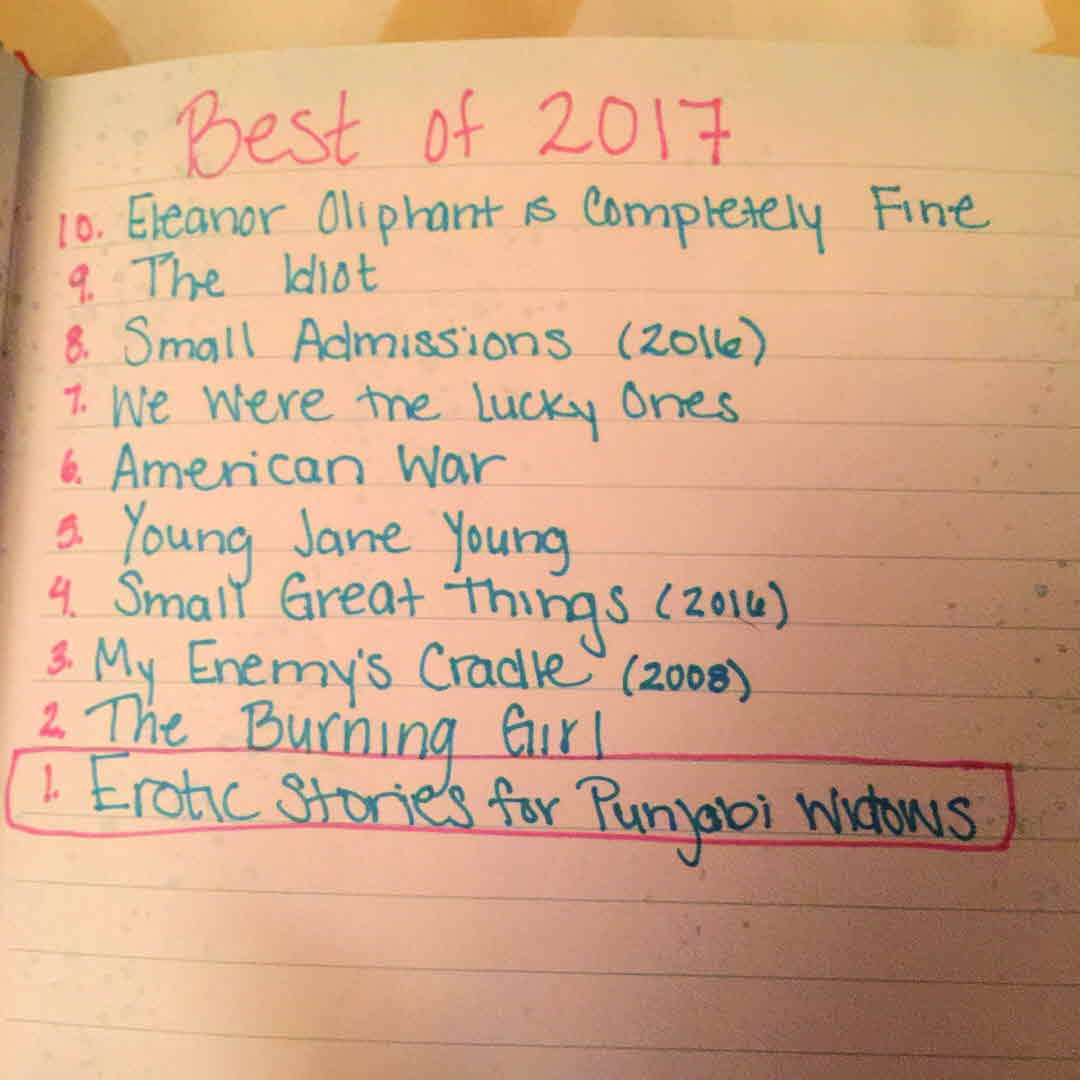 Best of 2017
10. Eleanor Oliphant is Completely Fine
9. The Idiot
8. Small Admissions (2016)
7. We Were the Lucky Ones
6. American War
5. Young Jane Young
4. Small Great Things (2016)
3. My Enemy's Cradle (2008)
2. The Burning Girl
1. Erotic Stories for Punjabi Widows